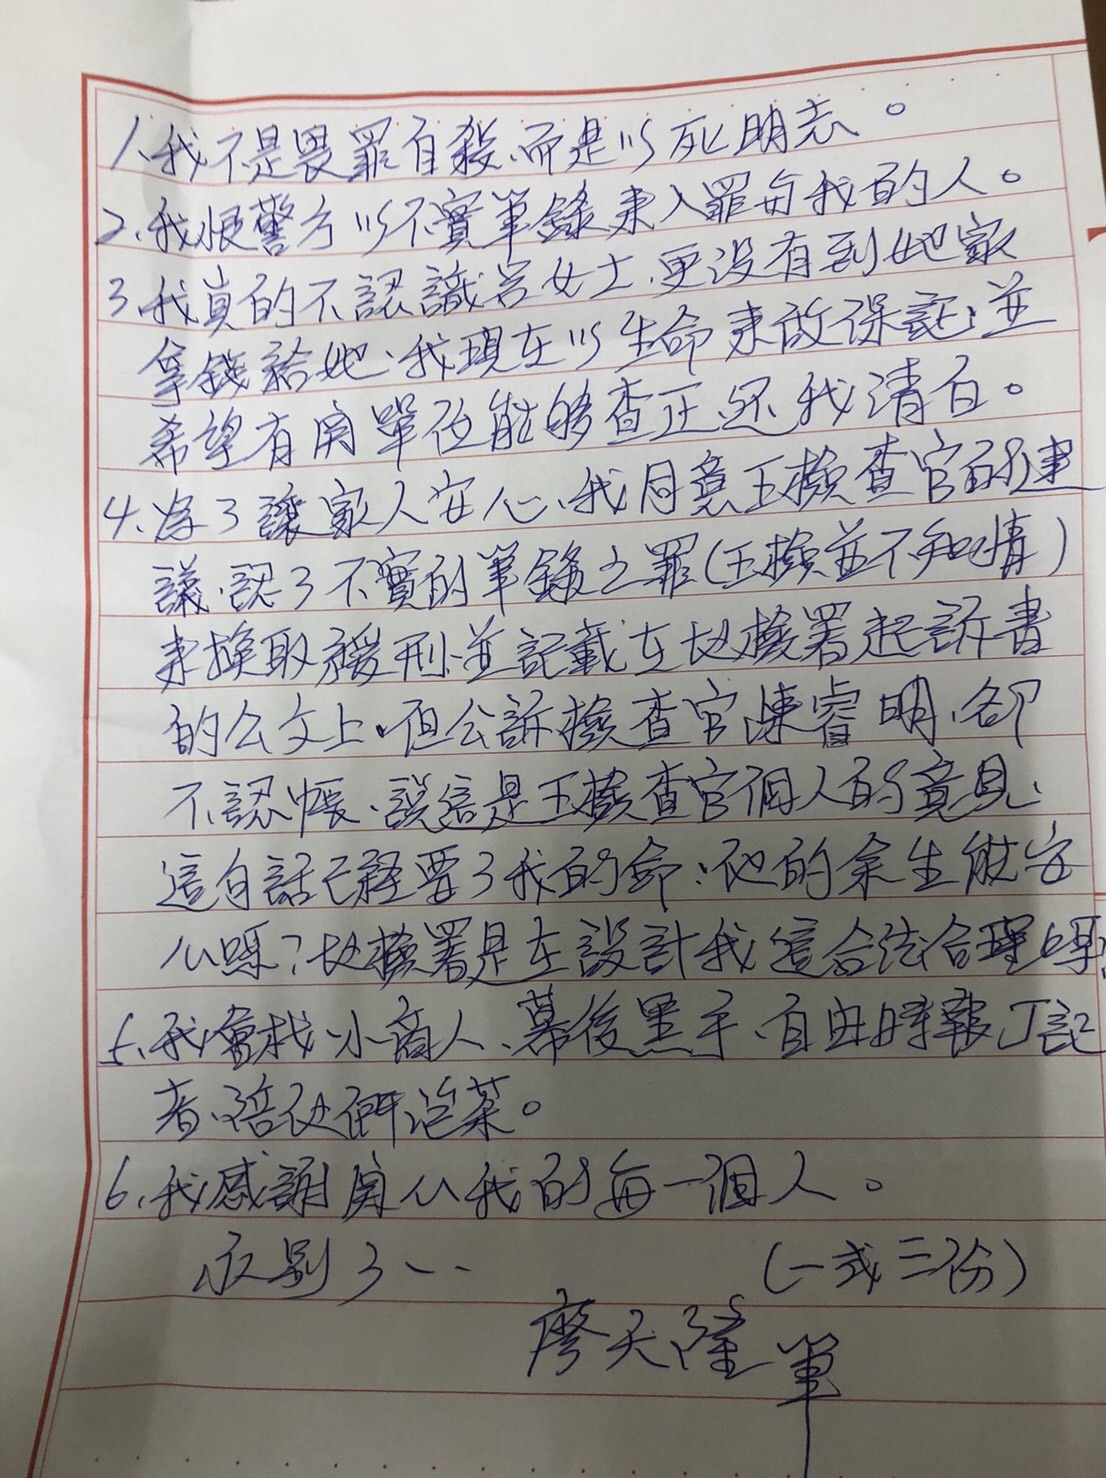 1、我不是畏罪自殺、而是以死明志。
2、我恨警方以不實筆錄來入罪與我的人。
3、我真的不認識呂女士、更沒有到她家
拿錢給她、我現在以生命來做保証;並
希望有關單位能夠查証、还我清白。
4、為了讓家人安心、我同意王檢查官的建
議、認了不實的筆錄之罪(王檢並不知情)
來換取緩刑、並記載在地檢署起訴書
的公文上、但公訴檢查官陳睿明、卻
不認帳、說這是王檢查官個人的意見、
這句話已經要了我的命;他的余生能安
心嗎?地檢署是在設計我這合法合理嗎?
5、我會找小商人、幕後黑手、自由時報丁記
者、陪他們泡茶。
6、我感謝關心我的每一個人。
永別了、、 (一式三份)
廖天隆筆